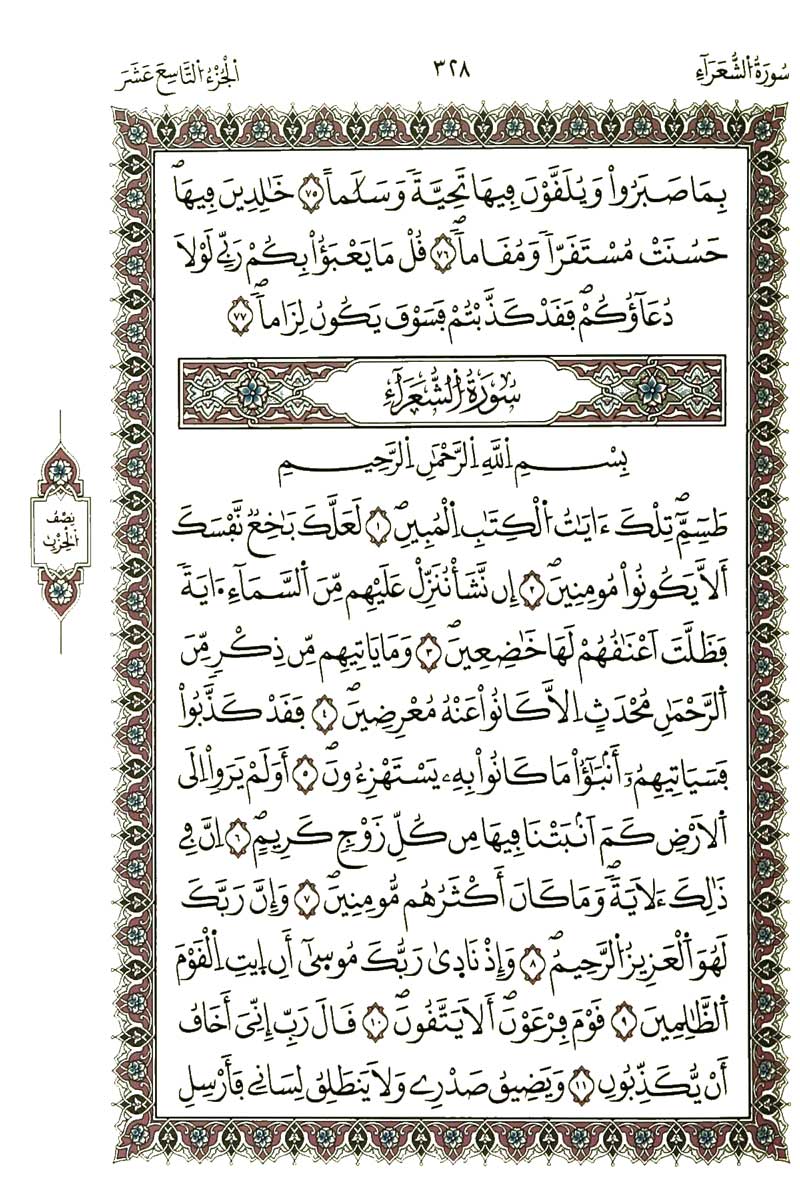 سُورَةُ الشُّعَرَآءِ
٣٢٨
الجُزْءُ التَّاسِعَ عَشَرَ
بِمَا صَبَرُواْ وَيُلَقَّوْنَ فِيهَا تَحِيَّةٗ وَسَلَٰماًۖ ٧٥ خَٰلِدِينَ فِيهَاۖ
حَسُنَتْ مُسْتَقَرّاٗ وَمُقَاماٗۖ ٧٦ قُلْ مَا يَعْبَؤُاْ بِكُمْ رَبِّے لَوْلَا
دُعَآؤُكُمْۖ فَقَدْ كَذَّبْتُمْ فَسَوْفَ يَكُونُ لِزَاماٗۖ ٧٧
سُورَةُ الشُّعَرَآءِ
بِسْمِ اِللَّهِ اِلرَّحْمَٰنِ اِلرَّحِيمِ
طَسِٓمِّٓۖ تِلْكَ ءَايَٰتُ اُلْكِتَٰبِ اِلْمُبِينِۖ ١ لَعَلَّكَ بَٰخِعٞ نَّفْسَكَ
أَلَّا يَكُونُواْ مُومِنِينَۖ ٢ إِن نَّشَأْ نُنَزِّلْ عَلَيْهِم مِّنَ اَلسَّمَآءِ اَ۬يَةٗ
فَظَلَّتَ اَعْنَٰقُهُمْ لَهَا خَٰضِعِينَۖ ٣ وَمَا يَاتِيهِم مِّن ذِكْرٖ مِّنَ
اَلرَّحْمَٰنِ مُحْدَثٍ اِلَّا كَانُواْ عَنْهُ مُعْرِضِينَۖ ٤ فَقَدْ كَذَّبُواْ
فَسَيَاتِيهِمُۥٓ أَنۢبَٰٓؤُاْ مَا كَانُواْ بِهِۦ يَسْتَهْزِءُونَۖ ٥ أَوَلَمْ يَرَوِاْ اِلَى
اَلَارْضِ كَمَ اَنۢبَتْنَا فِيهَا مِن كُلِّ زَوْجٖ كَرِيمٍۖ ٦ اِنَّ فِے
ذَٰلِكَ ءَلَايَةٗۖ وَمَا كَانَ أَكْثَرُهُم مُّومِنِينَۖ ٧ وَإِنَّ رَبَّكَ
لَهُوَ اَلْعَزِيزُ اُلرَّحِيمُۖ ٨ وَإِذْ نَادَىٰ رَبُّكَ مُوسَىٰٓ أَنِ اِيتِ اِلْقَوْمَ
اَلظَّٰلِمِينَ ٩ قَوْمَ فِرْعَوْنَۖ أَلَا يَتَّقُونَۖ ١٠ قَالَ رَبِّ إِنِّيَ أَخَافُ
أَنْ يُّكَذِّبُونِ ١١ وَيَضِيقُ صَدْرِے وَلَا يَنطَلِقُ لِسَانِے فَأَرْسِلِ
نِصْفُ
الحِزْبِ